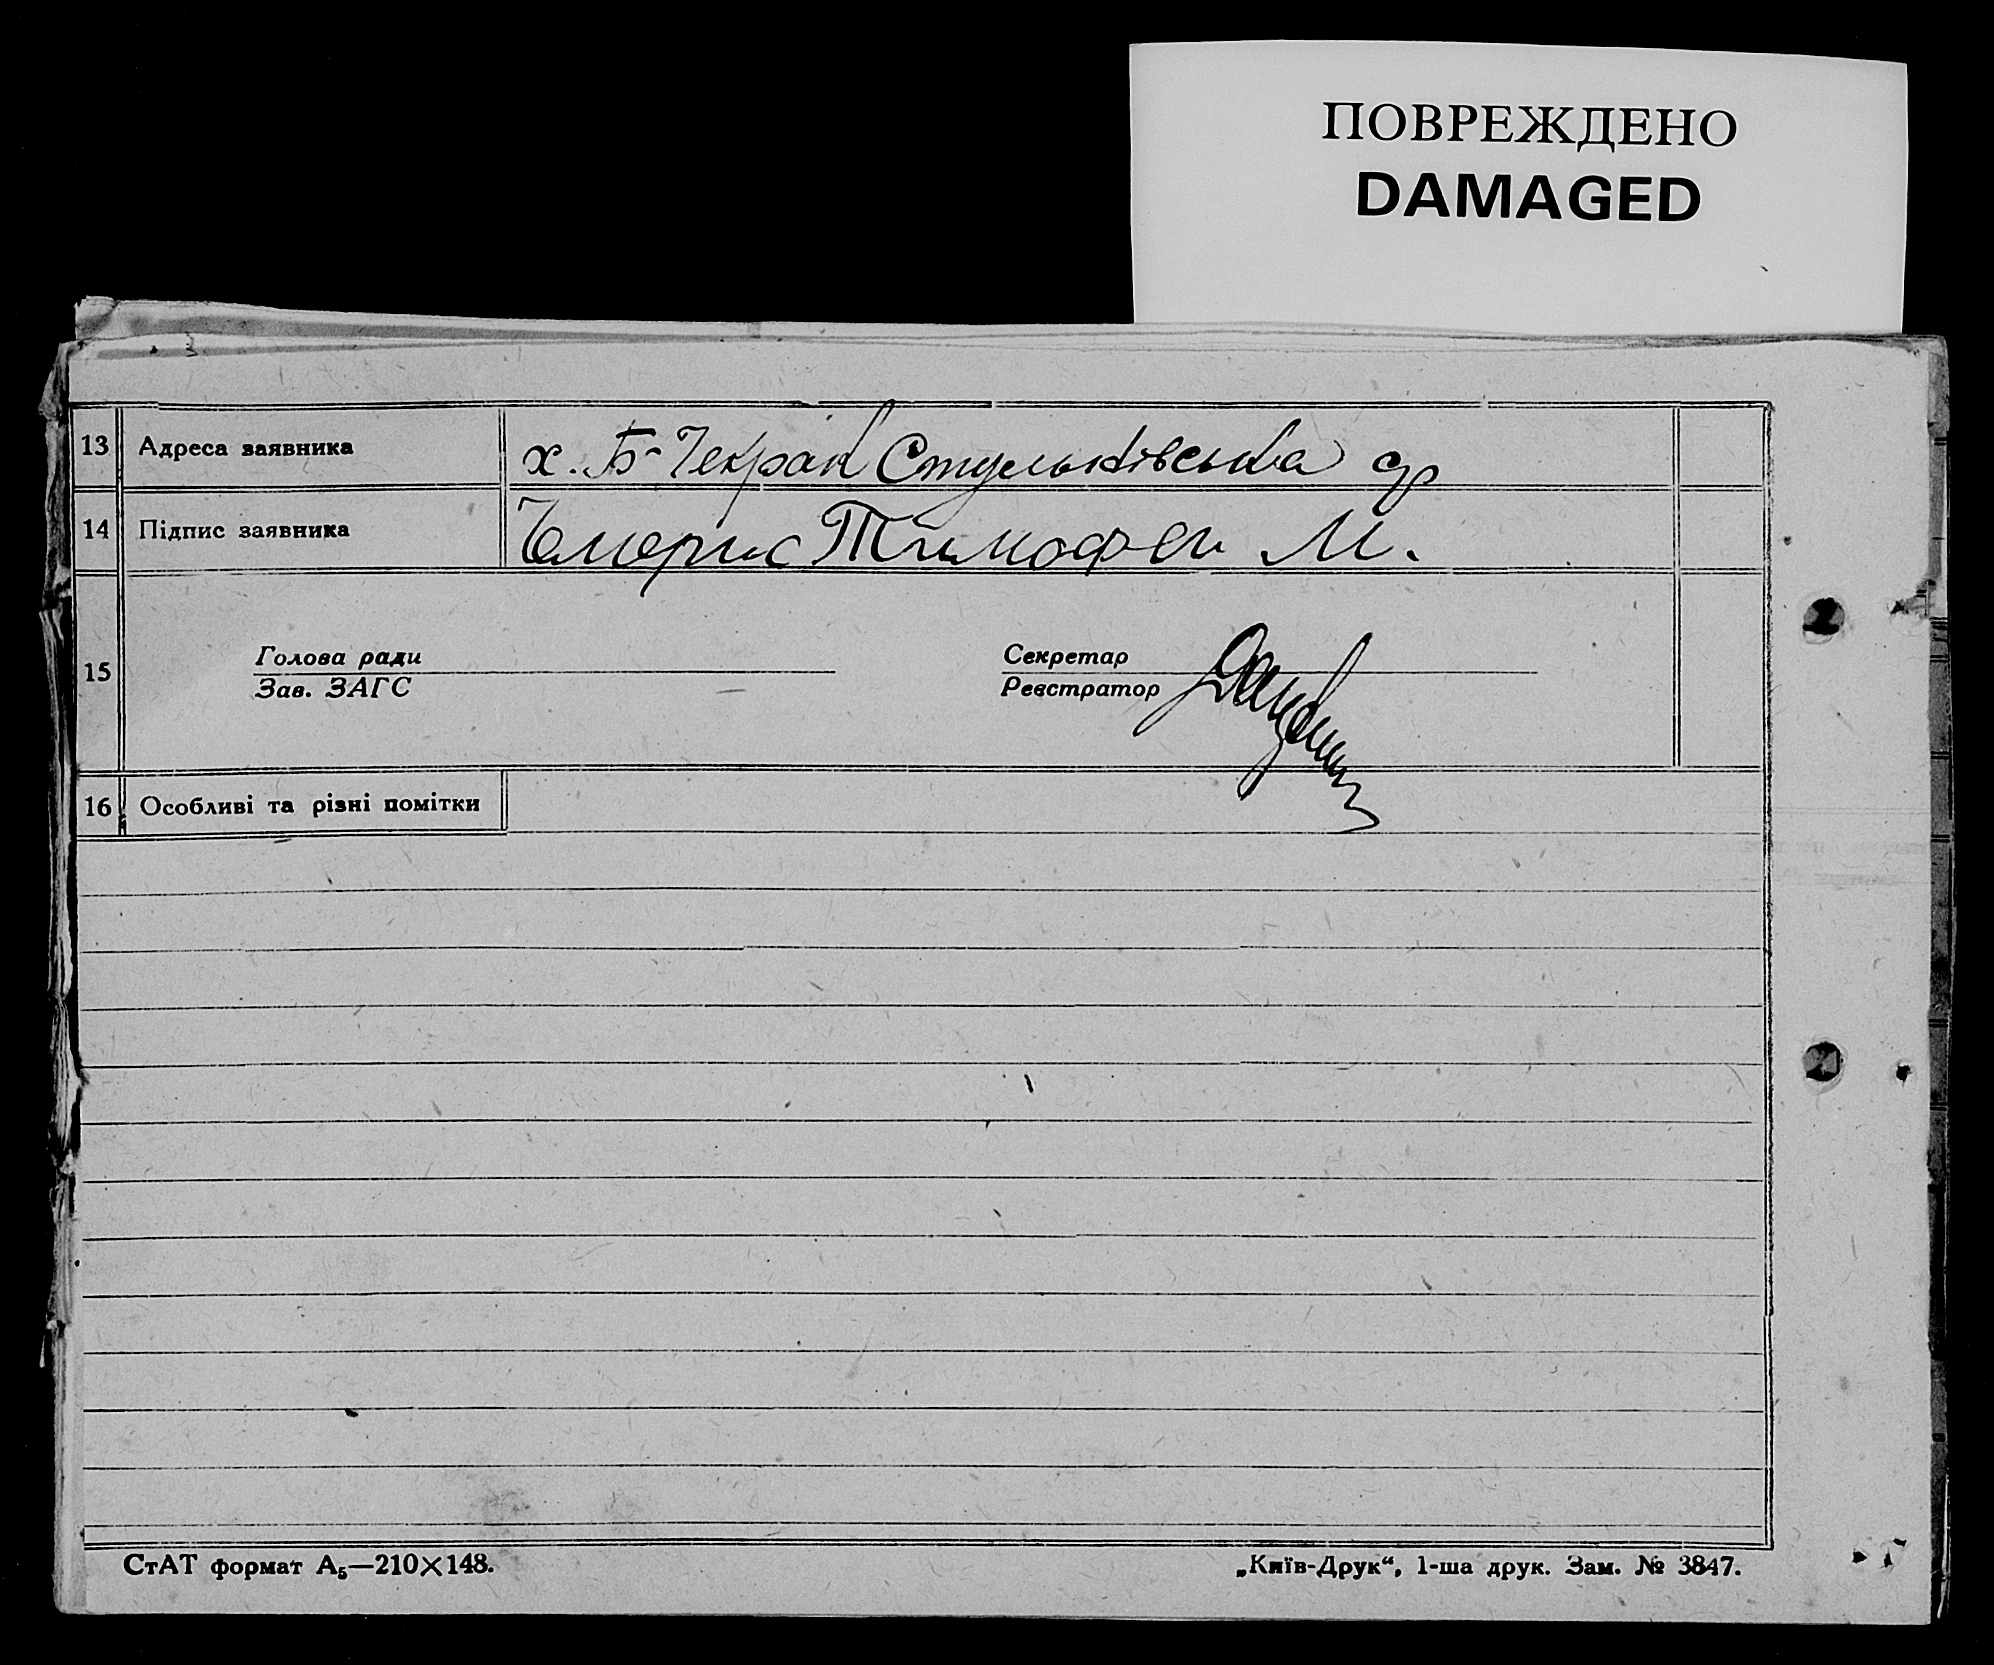 ПОВРЕЖДЕНО
DAMAGED
13 Адреса заявника х. Б-Чекрак Стульнівська
14 Підпис заявника Тимофеи М.
15 Голова ради Секретар
Зав. ЗАГС Реєстратор
16 Особливі та різні помітки
СтАТ формат А₅—210×148. „Київ-Друк“, 1-ша друк. Зам. № 3847.